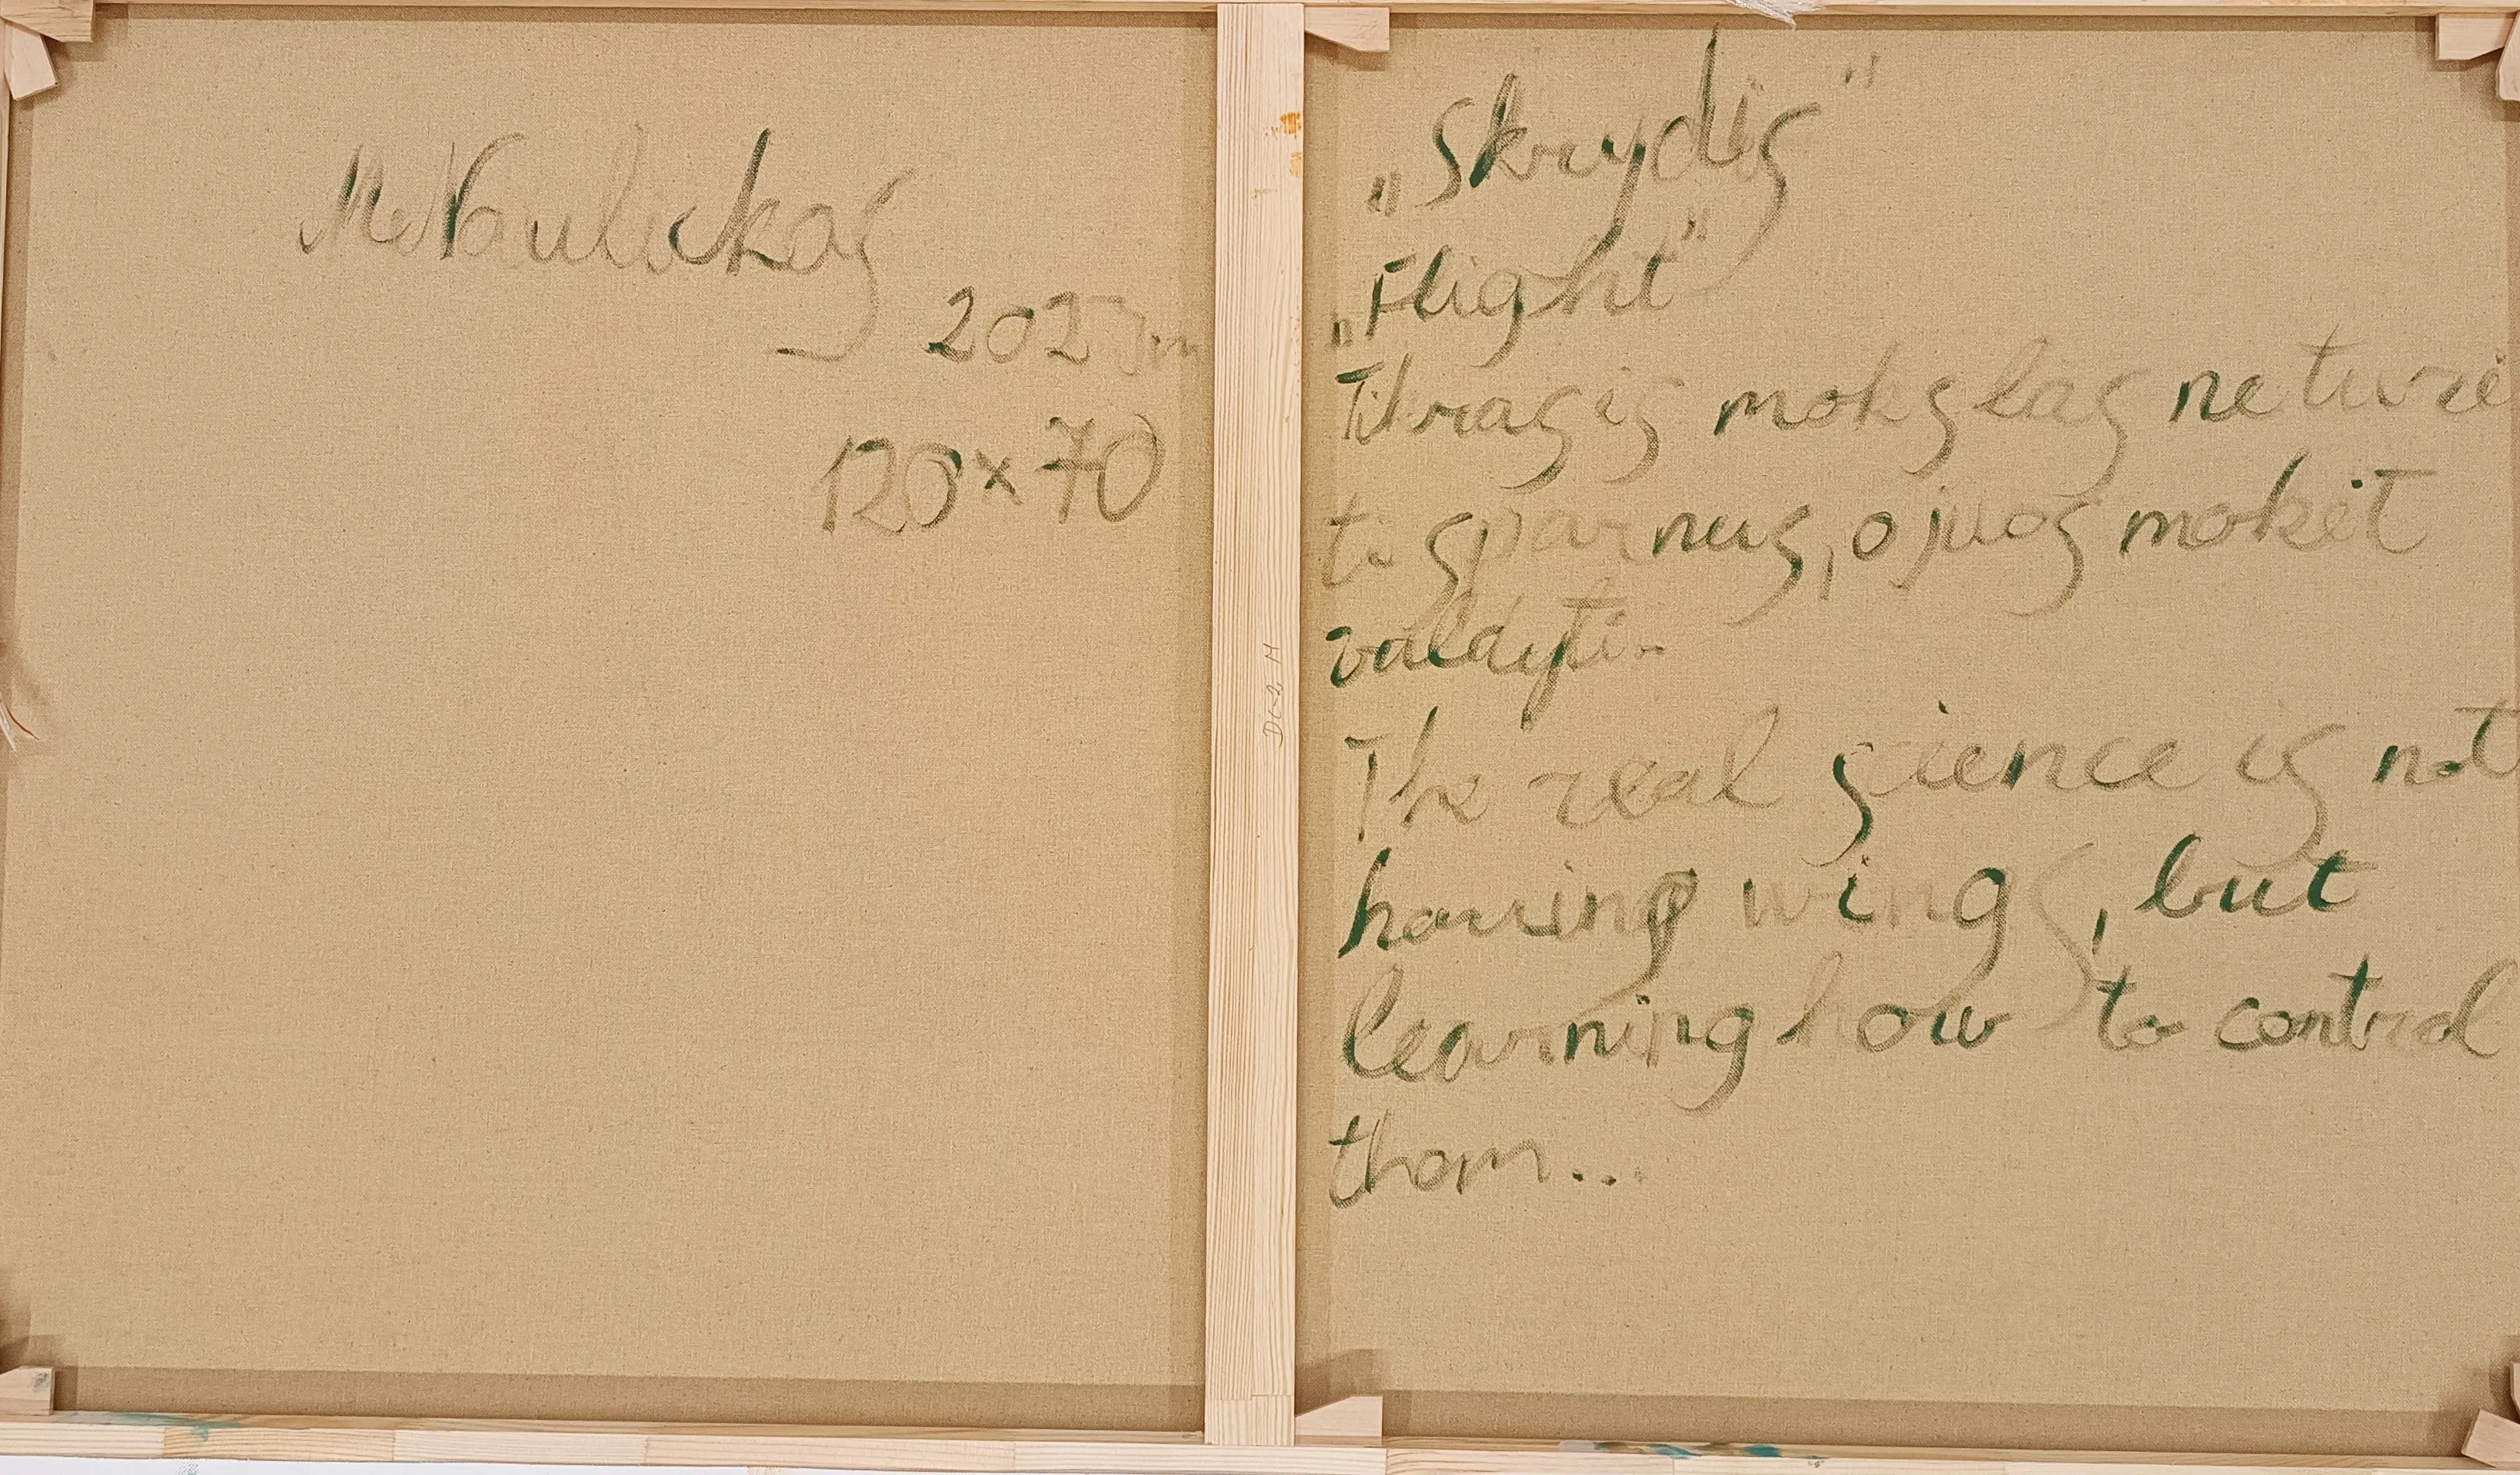 120×70
„Skrydis"
„Flight"
Tikrasis mokslas ne turė
ti sparnus, o juos mokėt
valdyti..
The real sience is not
having wings, but
learning how to control
them...